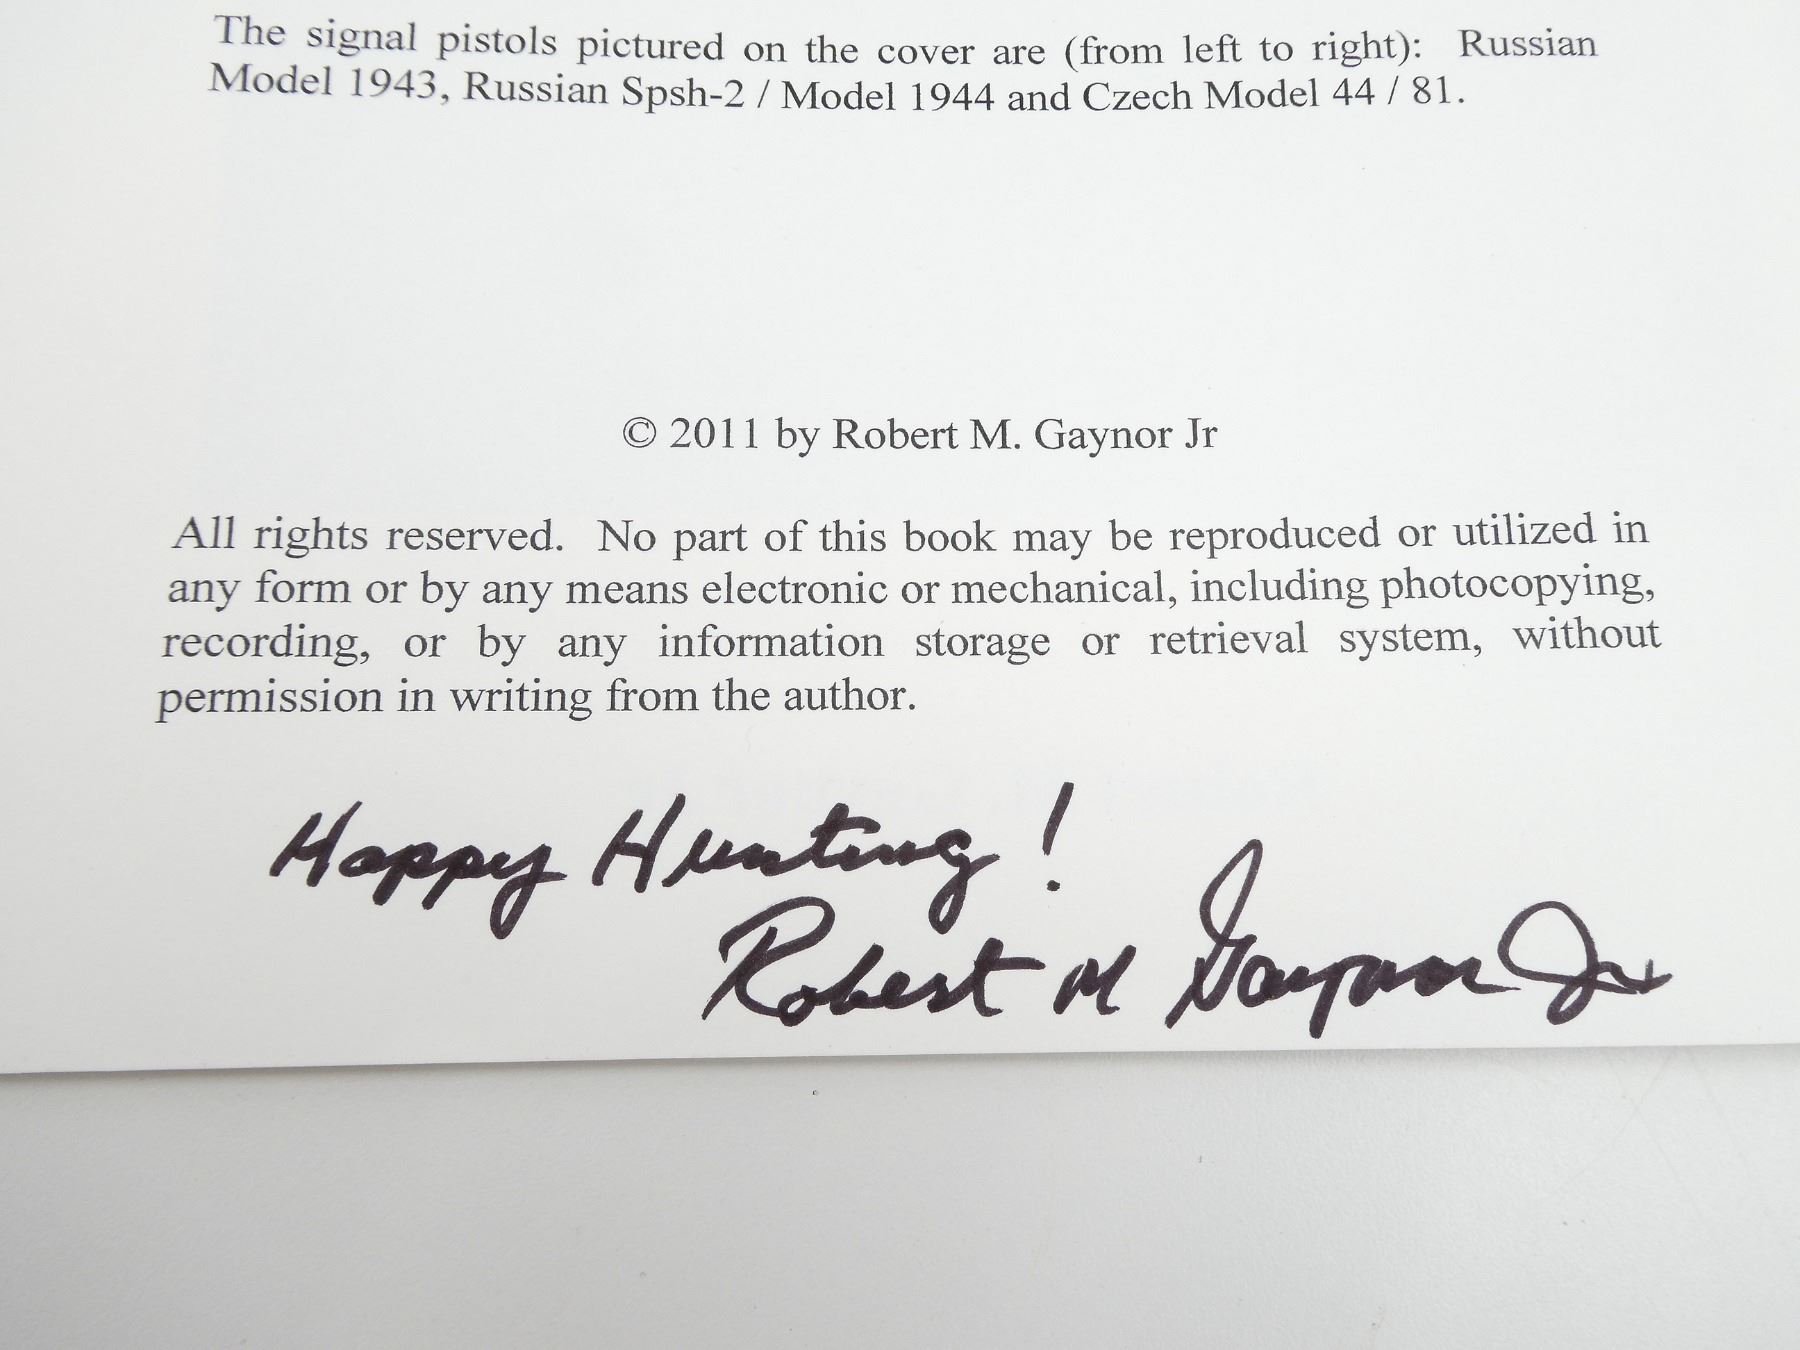 The signal pistols pictured on the cover are (from left to right): Russian
Model 1943, Russian Spsh-2 / Model 1944 and Czech Model 44 / 81.
© 2011 by Robert M. Gaynor Jr
All rights reserved. No part of this book may be reproduced or utilized in
any form or by any means electronic or mechanical, including photocopying,
recording, or by any information storage or retrieval system, without
permission in writing from the author.
Happy Hunting!
Robert M Gaynor Jr